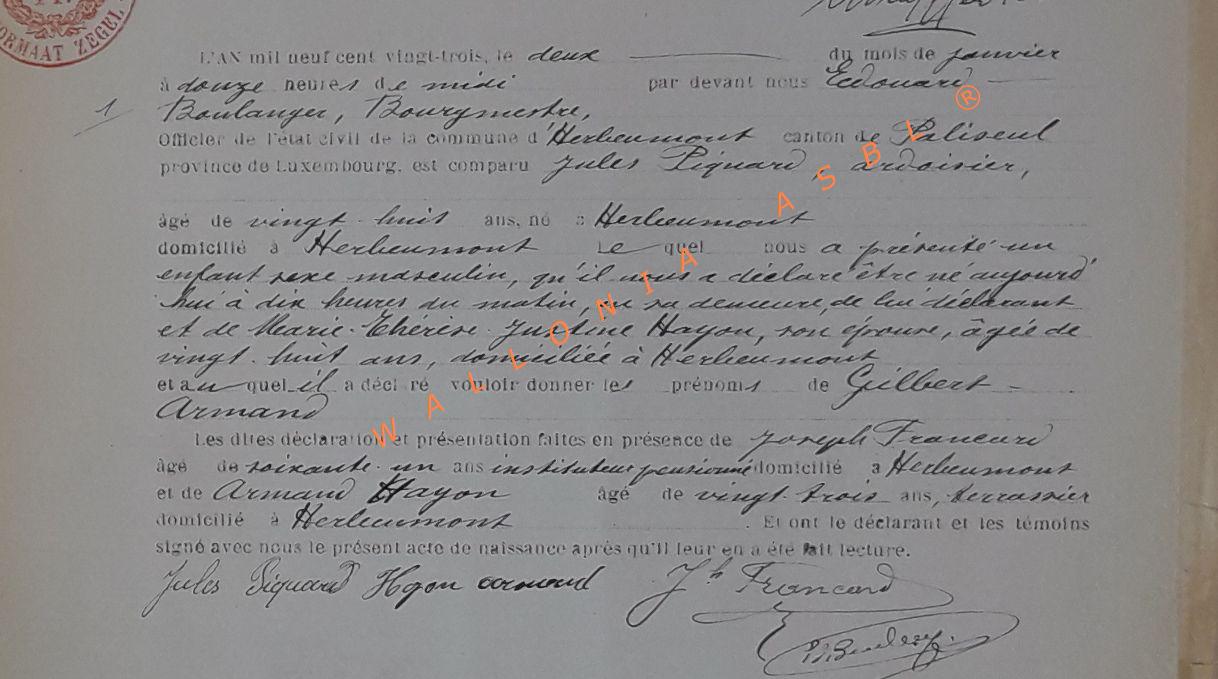 ORMAAT ZEGEL
L'AN mil neuf cent vingt-trois, le deux du mois de janvier
à douze heures de midi par devant nous Edouard
1
Boulanger, Bourgmestre,
Officier de l'état civil de la commune d'Herbeumont canton de Paliseul
province de Luxembourg, est comparu Jules Piquard, ardoisier,
âgé de vingt-huit ans, né à Herbeumont
domicilié à Herbeumont Le quel nous a présenté un
enfant sexe masculin, qu'il nous a déclaré être né aujourd'
hui à dix heures du matin, en sa demeure, de lui déclarant
et de Marie-Thérèse-Justine Hayon, son épouse, âgée de
vingt-huit ans, domiciliée à Herbeumont
et au quel il a déclaré vouloir donner les prénoms de Gilbert-
Armand
Les dites déclaration et présentation faites en présence de Joseph Francard
âgé de soixante-un ans instituteur pensionné domicilié à Herbeumont
et de Armand Hayon âgé de vingt-trois ans, terrassier
domicilié à Herbeumont. Et ont le déclarant et les témoins
signé avec nous le présent acte de naissance après qu'il leur en a été fait lecture.
Jules Piquard Hayon armand Jh Francard
WALLONIA ASBL ®